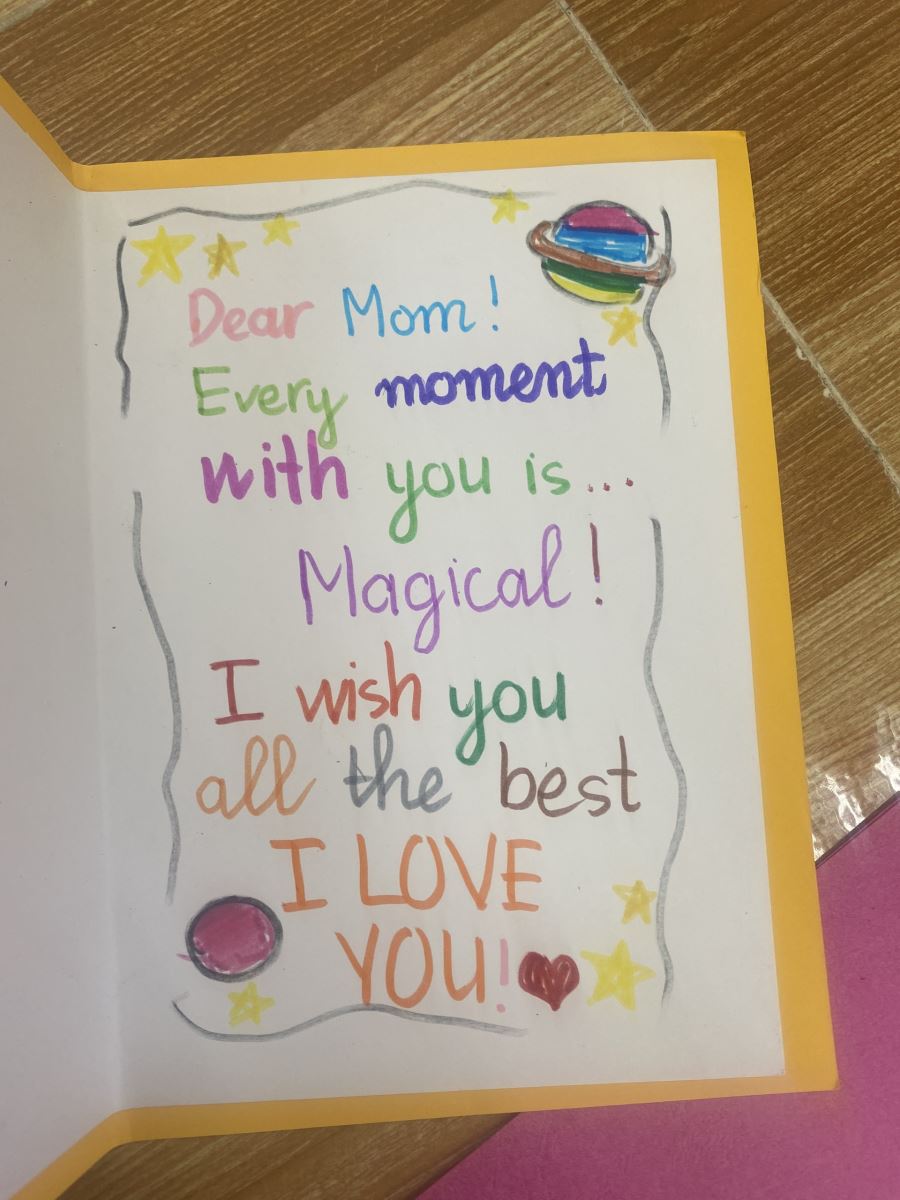 Dear Mom!
Every moment
with you is...
Magical!
I wish you
all the best
I LOVE
YOU!